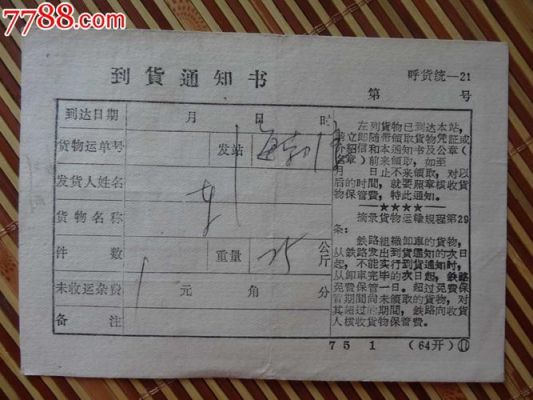 7788.com
到貨通知书
呼货统—21
第 号
到达日期 月 日 时
货物运单号 发站
发货人姓名
货物名称
件数 重量 25 公斤
未收运杂费 元 角 分
备注
左列貨物已到达本站，
请立即随带领取貨物凭証或
介紹信和本通知书及公章（
名章）前来領取，如至
月 日止不来領取，对以
后的时間，就要照章核收貨
物保管費，特此通知。
★★★★
摘录貨物运輸規程第29
条：
鉄路組織卸車的貨物，
从鉄路发出到貨通知的次日
起，不能实行到貨通知时，
从卸車完毕的次日起，鉄路
免費保管一日。超过免費保
管期間尚未領取的貨物，对
其超过的期間，鉄路向收貨
人核收貨物保管費。
75 1 （64开）⑪